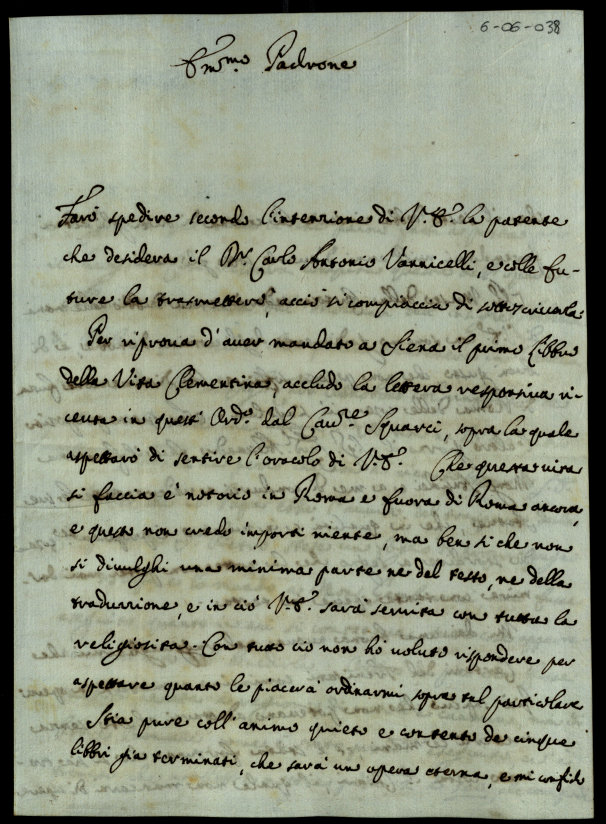 6-06-038
Em̃mo Padrone
Farò spedire secondo l'intenzione di V.E. la patente
che desidera il Dr. Carlo Antonio Vannicelli, e colle fu-
ture la trasmetterò, acciò si compiaccia di sottoscriverla.
Per riprova d'aver mandato a Siena il primo libbro
della Vita Clementina, accludo la lettera responsiva ri-
ceuta in quest'Ord.o dal Cav.re Squarci, sopra la quale
aspettarò di sentire l'oracolo di V.E. Che questa vita
si faccia è notorio in Roma e fuora di Roma ancora,
e questo non credo importi niente, ma ben sì che non
si divulghi una minima parte ne del testo, ne della
traduzzione, e in ciò V.E. sarà servita con tutta la
religiosità. Con tutto ciò non hò voluto rispondere per
aspettare quanto le piacerà ordinarmi sopra tal particolare
Stia pure coll'animo quieto e contento de cinque
libbri già terminati, che sarà un opera eterna, e mi confido